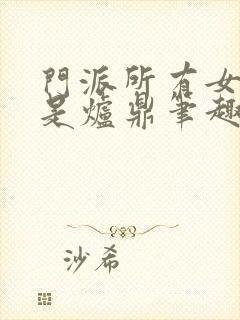 門派所有女
是爐鼎筆趣
沙希